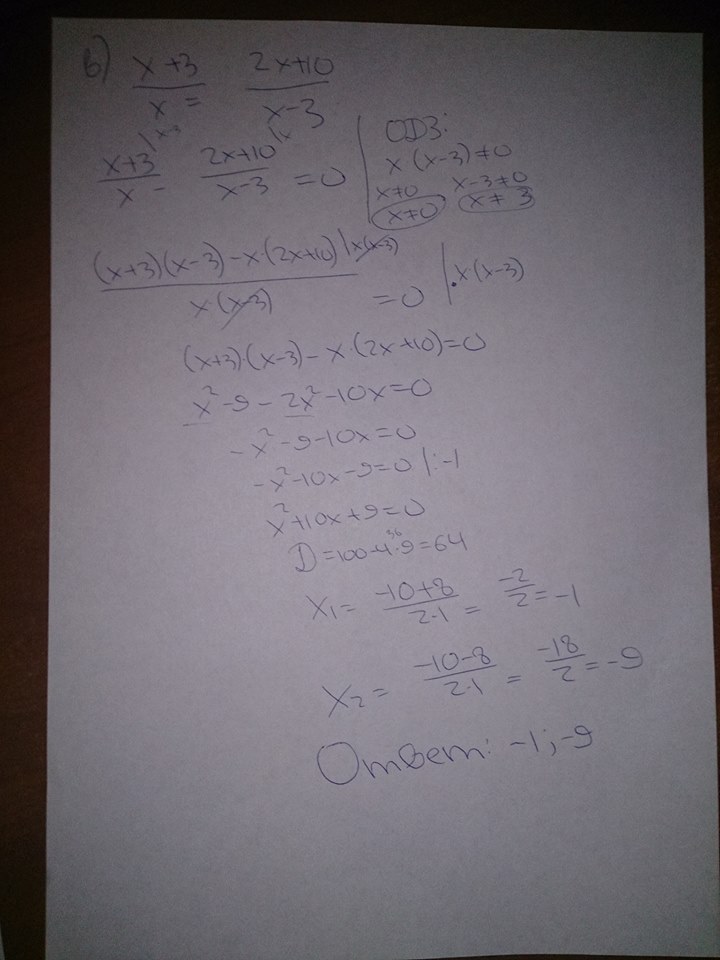 в) x+3/x = 2x+10/x-3
x+3/x |x-3 - 2x+10/x-3 |x = 0
ОДЗ:
x(x-3)≠0
x≠0 x-3≠0
x≠0 x≠3
(x+3)(x-3)-x·(2x+10)|x(x-3) / x·(x-3) = 0 |·x(x-3)
(x+3)·(x-3)-x·(2x+10)=0
x²-9-2x²-10x=0
-x²-9-10x=0
-x²-10x-9=0 |:-1
x²+10x+9=0
D=100-4·9=64 36
x₁= -10+8/2·1 = -2/2 = -1
x₂= -10-8/2·1 = -18/2 = -9
Ответ: -1; -9